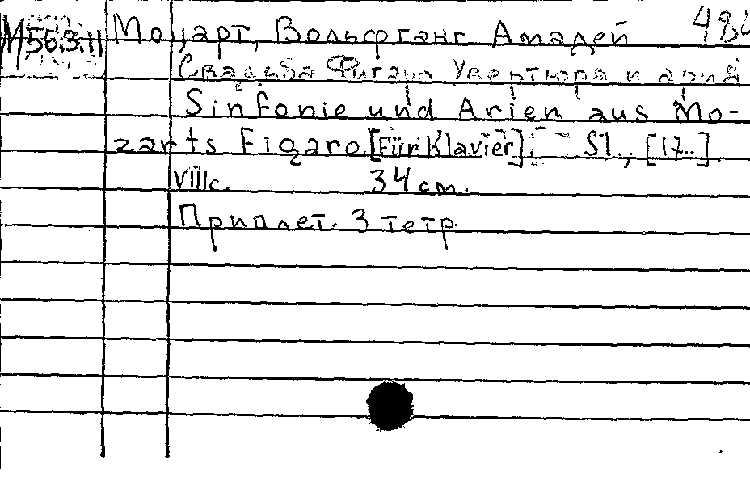 М 56.3.11 Моцарт, Вольфганг Амадей
Свадьба Фигаро Увертюра и арии
Sinfonie und Arien aus Mo-
zarts Figaro [Für Klavier]. S1., [17..]
VIIIc. 34 cm.
Приплет. 3 тетр.